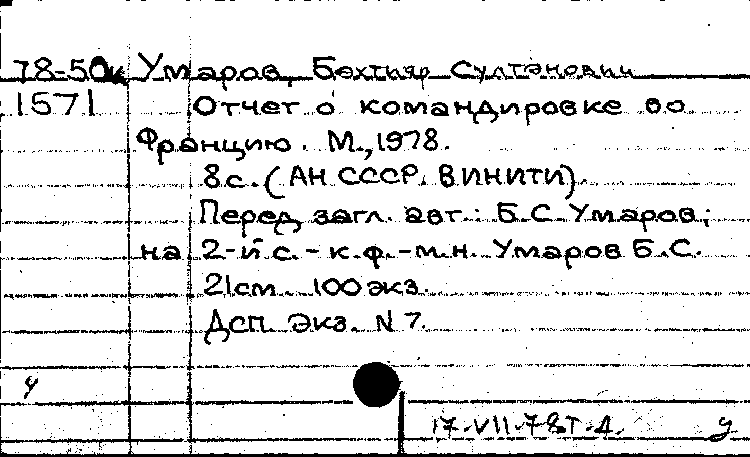 78-50к Умаров, Бахтияр Султанович
1571 Отчет о командировке во
Францию. М., 1978.
8с. (АН СССР. ВИНИТИ).
Перед загл. авт.: Б.С. Умаров;
на 2-й с. - к.ф.-м.н. Умаров Б.С.
21см. 100 экз.
Дсп. Экз. N 7.
у
17-VII-78Т-Д. У